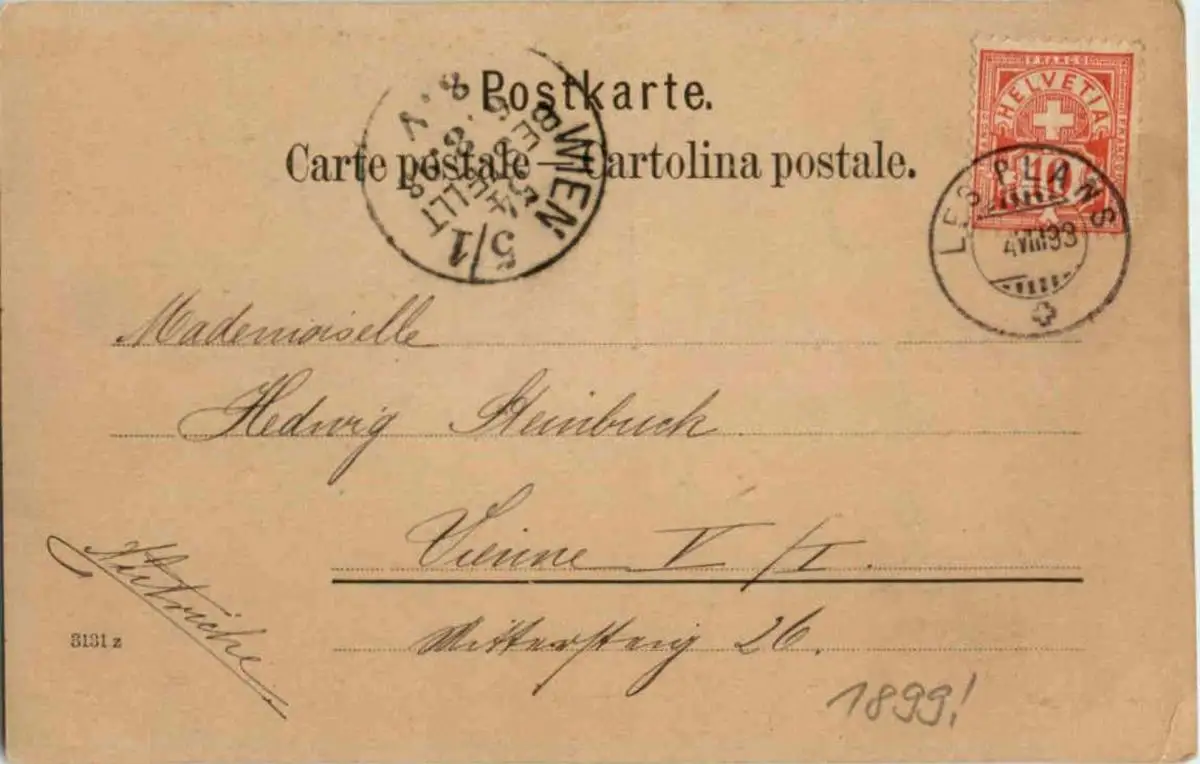 Postkarte.
Carte postale — Cartolina postale.
FRANCO
HELVETIA
10
LES PLANS
4 VIII 93
WIEN
5/1
BESTELLT
Mademoiselle
Hedwig Steinbuch
Vienne V/I.
Mittersteig 26.
Autriche
3131 z
1899!